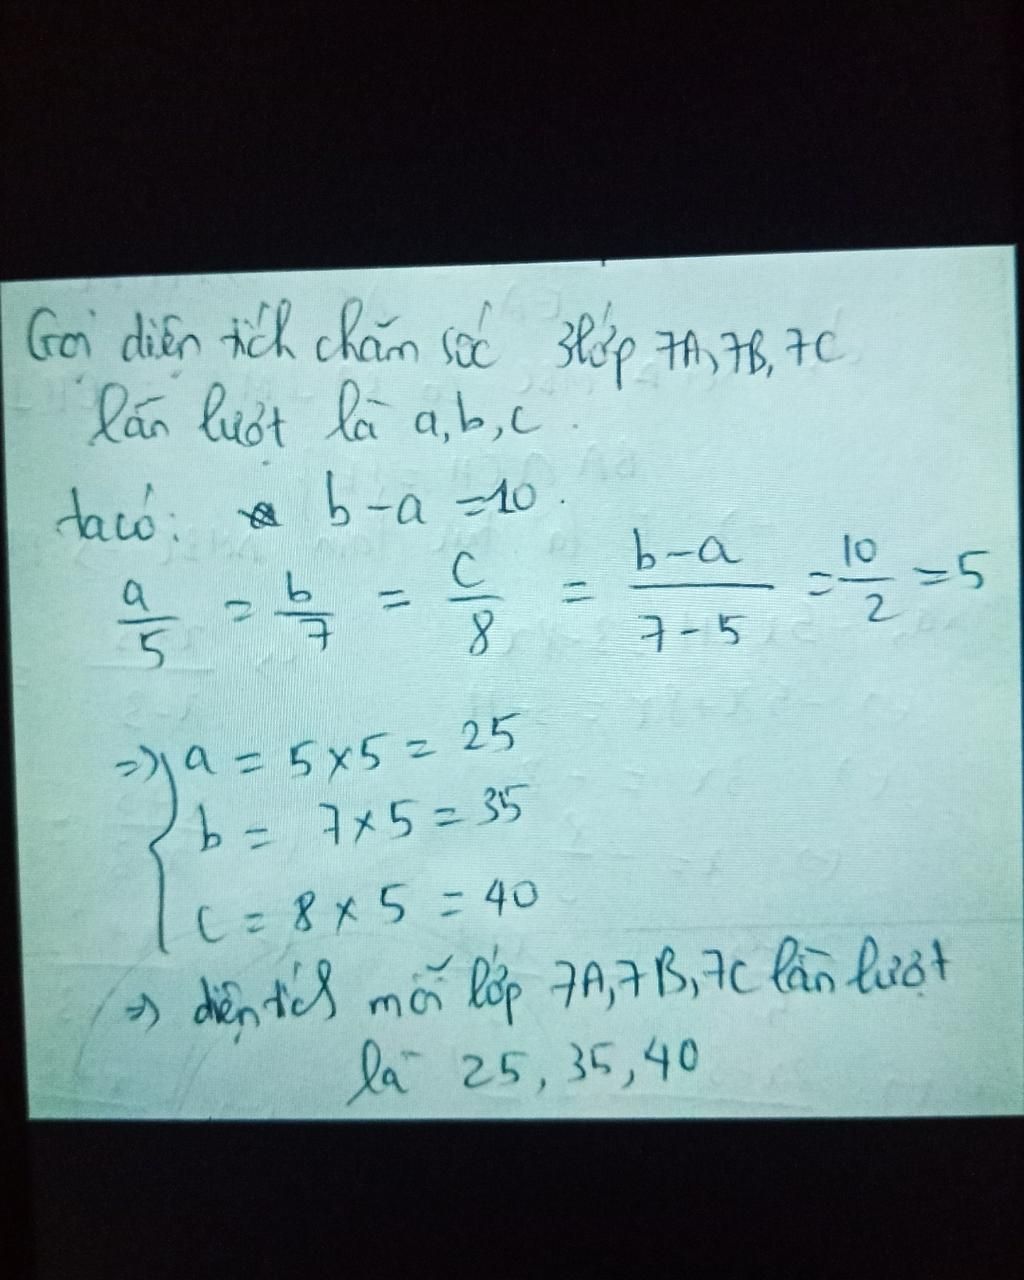 Gọi diện tích chăm sóc 3 lớp 7A, 7B, 7C
lần lượt là a, b, c.
ta có: b - a = 10.
a/5 = b/7 = c/8 = (b-a)/(7-5) = 10/2 = 5
=> { a = 5 × 5 = 25
b = 7 × 5 = 35
c = 8 × 5 = 40
=> diện tích mỗi lớp 7A, 7B, 7C lần lượt
là 25, 35, 40